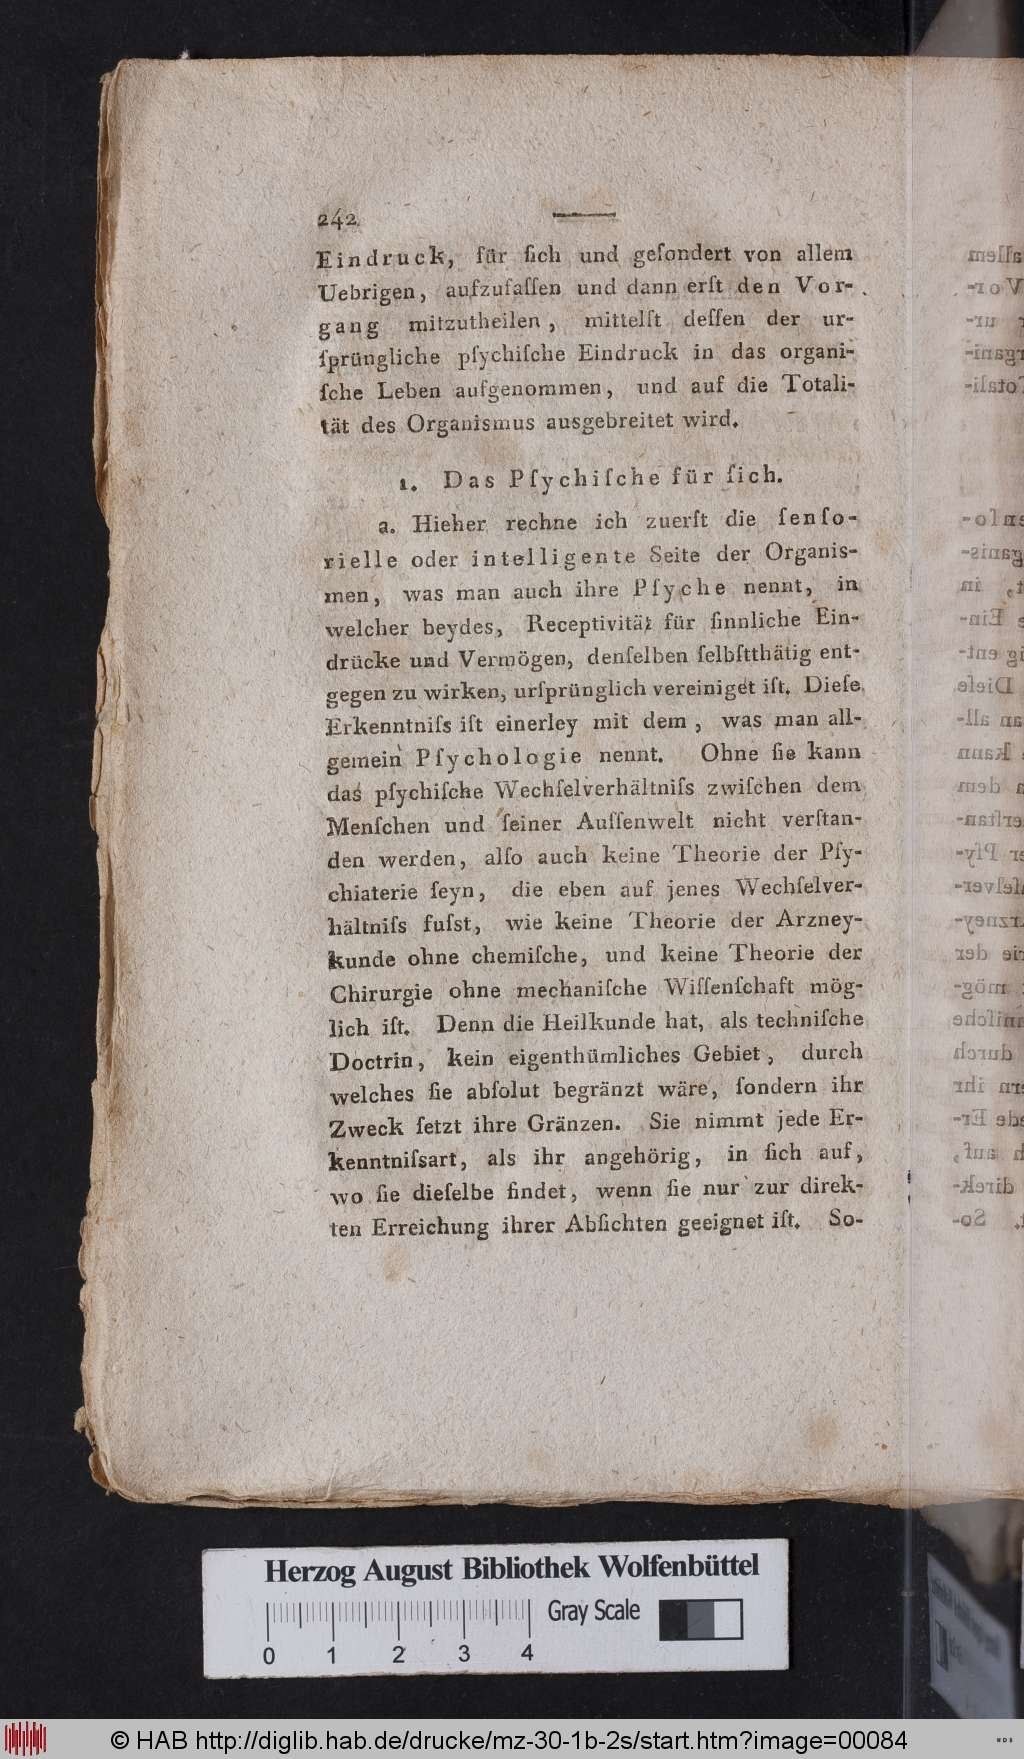 242
Eindruck, für ſich und geſondert von allem
Uebrigen, aufzufaſſen und dann erſt den Vor-
gang mitzutheilen, mittelſt deſſen der ur-
ſprüngliche pſychiſche Eindruck in das organi-
ſche Leben aufgenommen, und auf die Totali-
tät des Organismus ausgebreitet wird.
1. Das Pſychiſche für ſich.
a. Hieher rechne ich zuerſt die ſenſo-
rielle oder intelligente Seite der Organis-
men, was man auch ihre Pſyche nennt, in
welcher beydes, Receptivität für ſinnliche Ein-
drücke und Vermögen, denſelben ſelbſtthätig ent-
gegen zu wirken, urſprünglich vereiniget iſt. Dieſe
Erkenntniſs iſt einerley mit dem, was man all-
gemein Pſychologie nennt. Ohne ſie kann
das pſychiſche Wechſelverhältniſs zwiſchen dem
Menſchen und ſeiner Auſſenwelt nicht verſtan-
den werden, alſo auch keine Theorie der Pſy-
chiaterie ſeyn, die eben auf jenes Wechſelver-
hältniſs fuſst, wie keine Theorie der Arzney-
kunde ohne chemiſche, und keine Theorie der
Chirurgie ohne mechaniſche Wiſſenſchaft mög-
lich iſt. Denn die Heilkunde hat, als techniſche
Doctrin, kein eigenthümliches Gebiet, durch
welches ſie abſolut begränzt wäre, ſondern ihr
Zweck ſetzt ihre Gränzen. Sie nimmt jede Er-
kenntniſsart, als ihr angehörig, in ſich auf,
wo ſie dieſelbe findet, wenn ſie nur zur direk-
ten Erreichung ihrer Abſichten geeignet iſt. So-
Herzog August Bibliothek Wolfenbüttel
Gray Scale
0 1 2 3 4
© HAB http://diglib.hab.de/drucke/mz-30-1b-2s/start.htm?image=00084